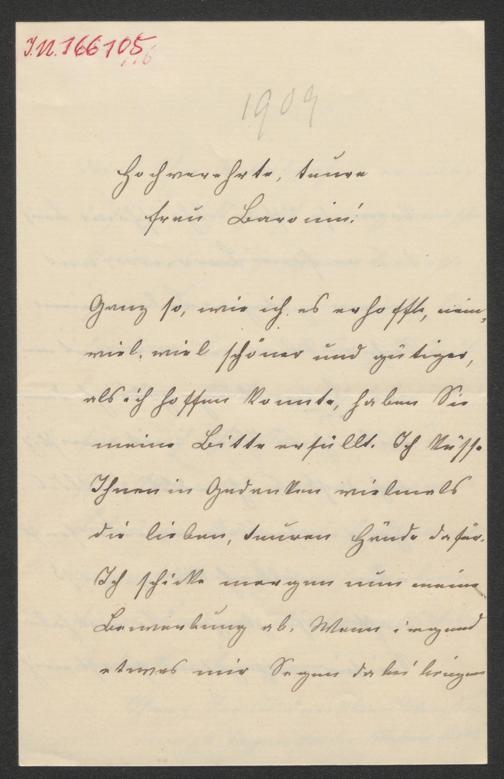 I.N. 166105
1909
Hochverehrte, teure
Frau Baronin!
Ganz so, wie ich es erhoffte, nein,
viel, viel schöner und gütiger,
als ich hoffen konnte, haben Sie
meine Bitte erfüllt. Ich küsse
Ihnen in Gedanken vielmals
die lieben, teuren Hände dafür.
Ich schicke morgen nun meine
Bewerbung ab. Wenn irgend
etwas mir Segen dabei bringen